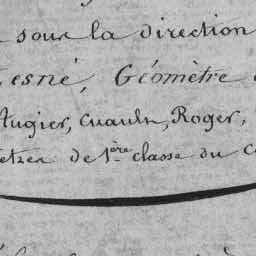 sous la direction
Lesné, Géomètre
Augier, Cuault, Roger,
de 1ère classe du